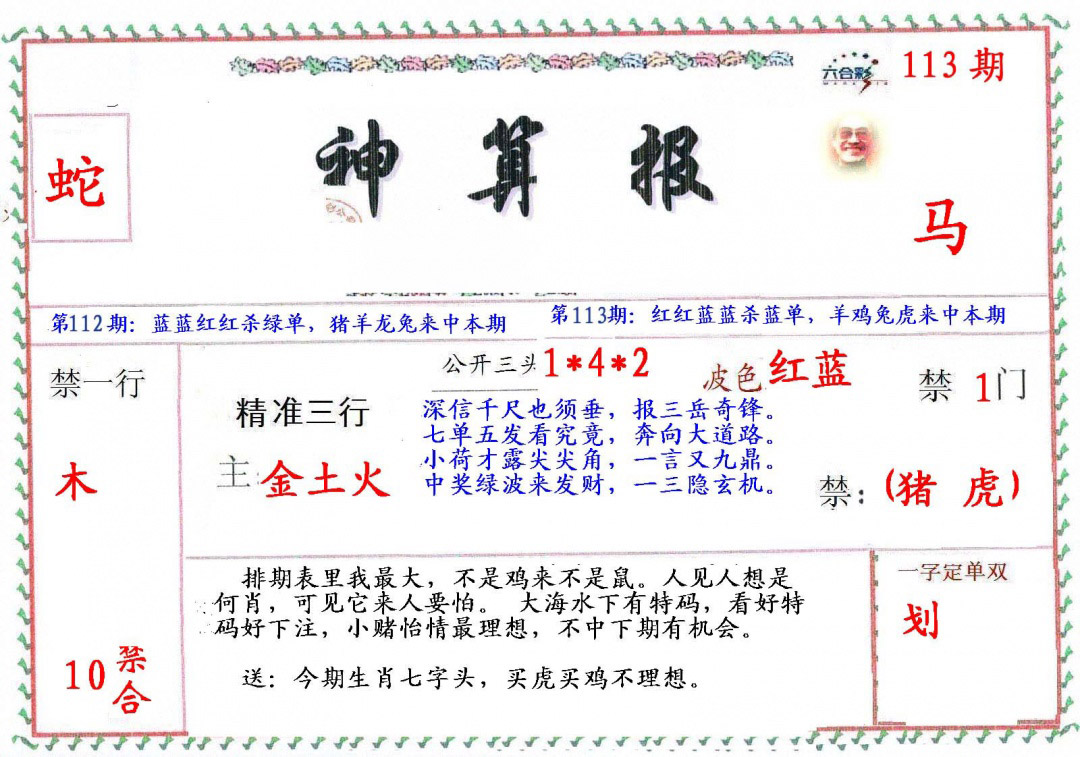 六合彩
113期
神算报
蛇
马
第112期：蓝蓝红红杀绿单，猪羊龙兔来中本期
第113期：红红蓝蓝杀蓝单，羊鸡兔虎来中本期
禁一行
木
10禁合
精准三行
主:金土火
公开三头1*4*2
波色红蓝
深信千尺也须垂，报三岳奇锋。
七单五发看究竟，奔向大道路。
小荷才露尖尖角，一言又九鼎。
中奖绿波来发财，一三隐玄机。
禁1门
禁：(猪 虎)
排期表里我最大，不是鸡来不是鼠。人见人想是
何肖，可见它来人要怕。 大海水下有特码，看好特
码好下注，小赌怡情最理想，不中下期有机会。
送：今期生肖七字头，买虎买鸡不理想。
一字定单双
划